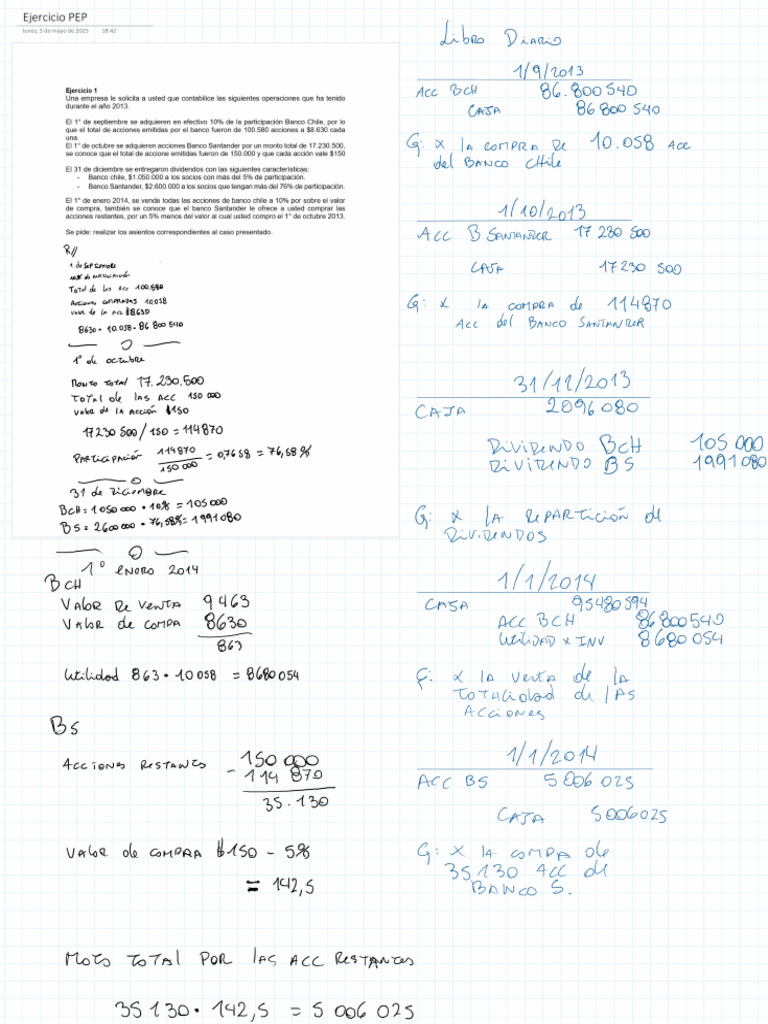 Ejercicio PEP
lunes, 5 de mayo de 2025 18:42
Ejercicio 1
Una empresa le solicita a usted que contabilice las siguientes operaciones que ha tenido
durante el año 2013.
El 1° de septiembre se adquieren en efectivo 10% de la participación Banco Chile, por lo
que el total de acciones emitidas por el banco fueron de 100.580 acciones a $8.630 cada
una.
El 1° de octubre se adquieren acciones Banco Santander por un monto total de 17.230.500,
se conoce que el total de accione emitidas fueron de 150.000 y que cada acción vale $150
El 31 de diciembre se entregaron dividendos con las siguientes características:
- Banco chile, $1.050.000 a los socios con más del 5% de participación.
- Banco Santander, $2.600.000 a los socios que tengan más del 76% de participación.
El 1° de enero 2014, se vende todas las acciones de banco chile a 10% por sobre el valor
de compra, también se conoce que el banco Santander le ofrece a usted comprar las
acciones restantes, por un 5% menos del valor al cual usted compro el 1° de octubre 2013.
Se pide: realizar los asientos correspondientes al caso presentado.
R//
1 de septiembre
Total de las acc 100.580
Acciones compradas 10.058
valor de la acc $8630
8630 · 10.058 = 86 800 540
1° de octubre
Monto total 17.230.500
Total de las acc 150 000
Valor de la acción $150
17230 500/150 = 114870
Participación 114870 / 150 000 = 0,7658 = 76,58%
31 de Diciembre
BCH = 1050 000 · 10% = 105 000
BS = 2600 000 · 76,58% = 1991 080
1° enero 2014
BCH
Valor de venta 9463
Valor de compa 8630
863
Utilidad 863 · 10 058 = 8680 054
BS
Acciones restantes 150 000
- 114 870
35.130
Valor de compra $150 - 5%
= 142,5
Moto total por las acc restantes
35 130 · 142,5 = 5 006 025
Libro Diario
1/9/2013
Acc BCH 86.800 540
Caja 86 800 540
G: x la compra de 10.058 acc
del Banco Chile
1/10/2013
Acc B Santander 17 230 500
Caja 17 230 500
G: x la compra de 114870
Acc del Banco Santander
31/12/2013
Caja 2096 080
Dividendo BCH 105 000
Dividendo BS 1991 080
G: x la repartición de
Dividendos
1/1/2014
Caja 95480594
Acc BCH 86 800 540
Utilidad x Inv 8 680 054
F: x la venta de la
totalidad de las
acciones
1/1/2014
Acc BS 5 006 025
Caja 5006025
G: x la compa de
35130 acc de
Banco S.